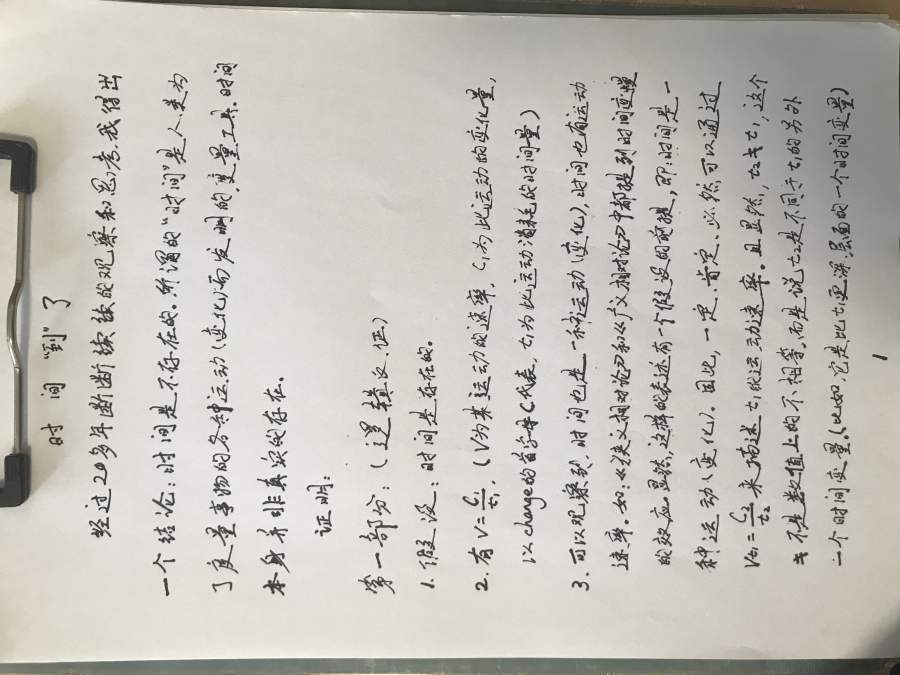 时间“到”了
经过20多年断断续续的观察和思考,我得出
一个结论:时间是不存在的。所谓的“时间”是人类为
了度量事物的各种运动(变化)而发明的度量工具.时间
本身并非真实的存在。
证明:
第一部分:(逻辑论证)
1.假设:时间是存在的。
2.有V=C₁/t₁,(V为某运动的速率,C₁为此运动的变化量,
以change的首字母C代表,t₁为此运动消耗的时间量)
3.可以观察到,时间也是一种运动(变化),时间也有运动
速率。如:《狭义相对论》和《广义相对论》中都提到时间变慢
的效应。显然,这样的表述有一个假设的前提,即:时间是一
种运动(变化)。因此,一定、肯定、必然可以通过
Vt₁=C₂/t₂来描述t₁的运动速率。且显然,t₂≠t₁,这个
≠不是数值上的不相等,而是说t₂是不同于t₁的另外
一个时间变量。(比如,它是比t₁更深层面的一个时间变量)
1